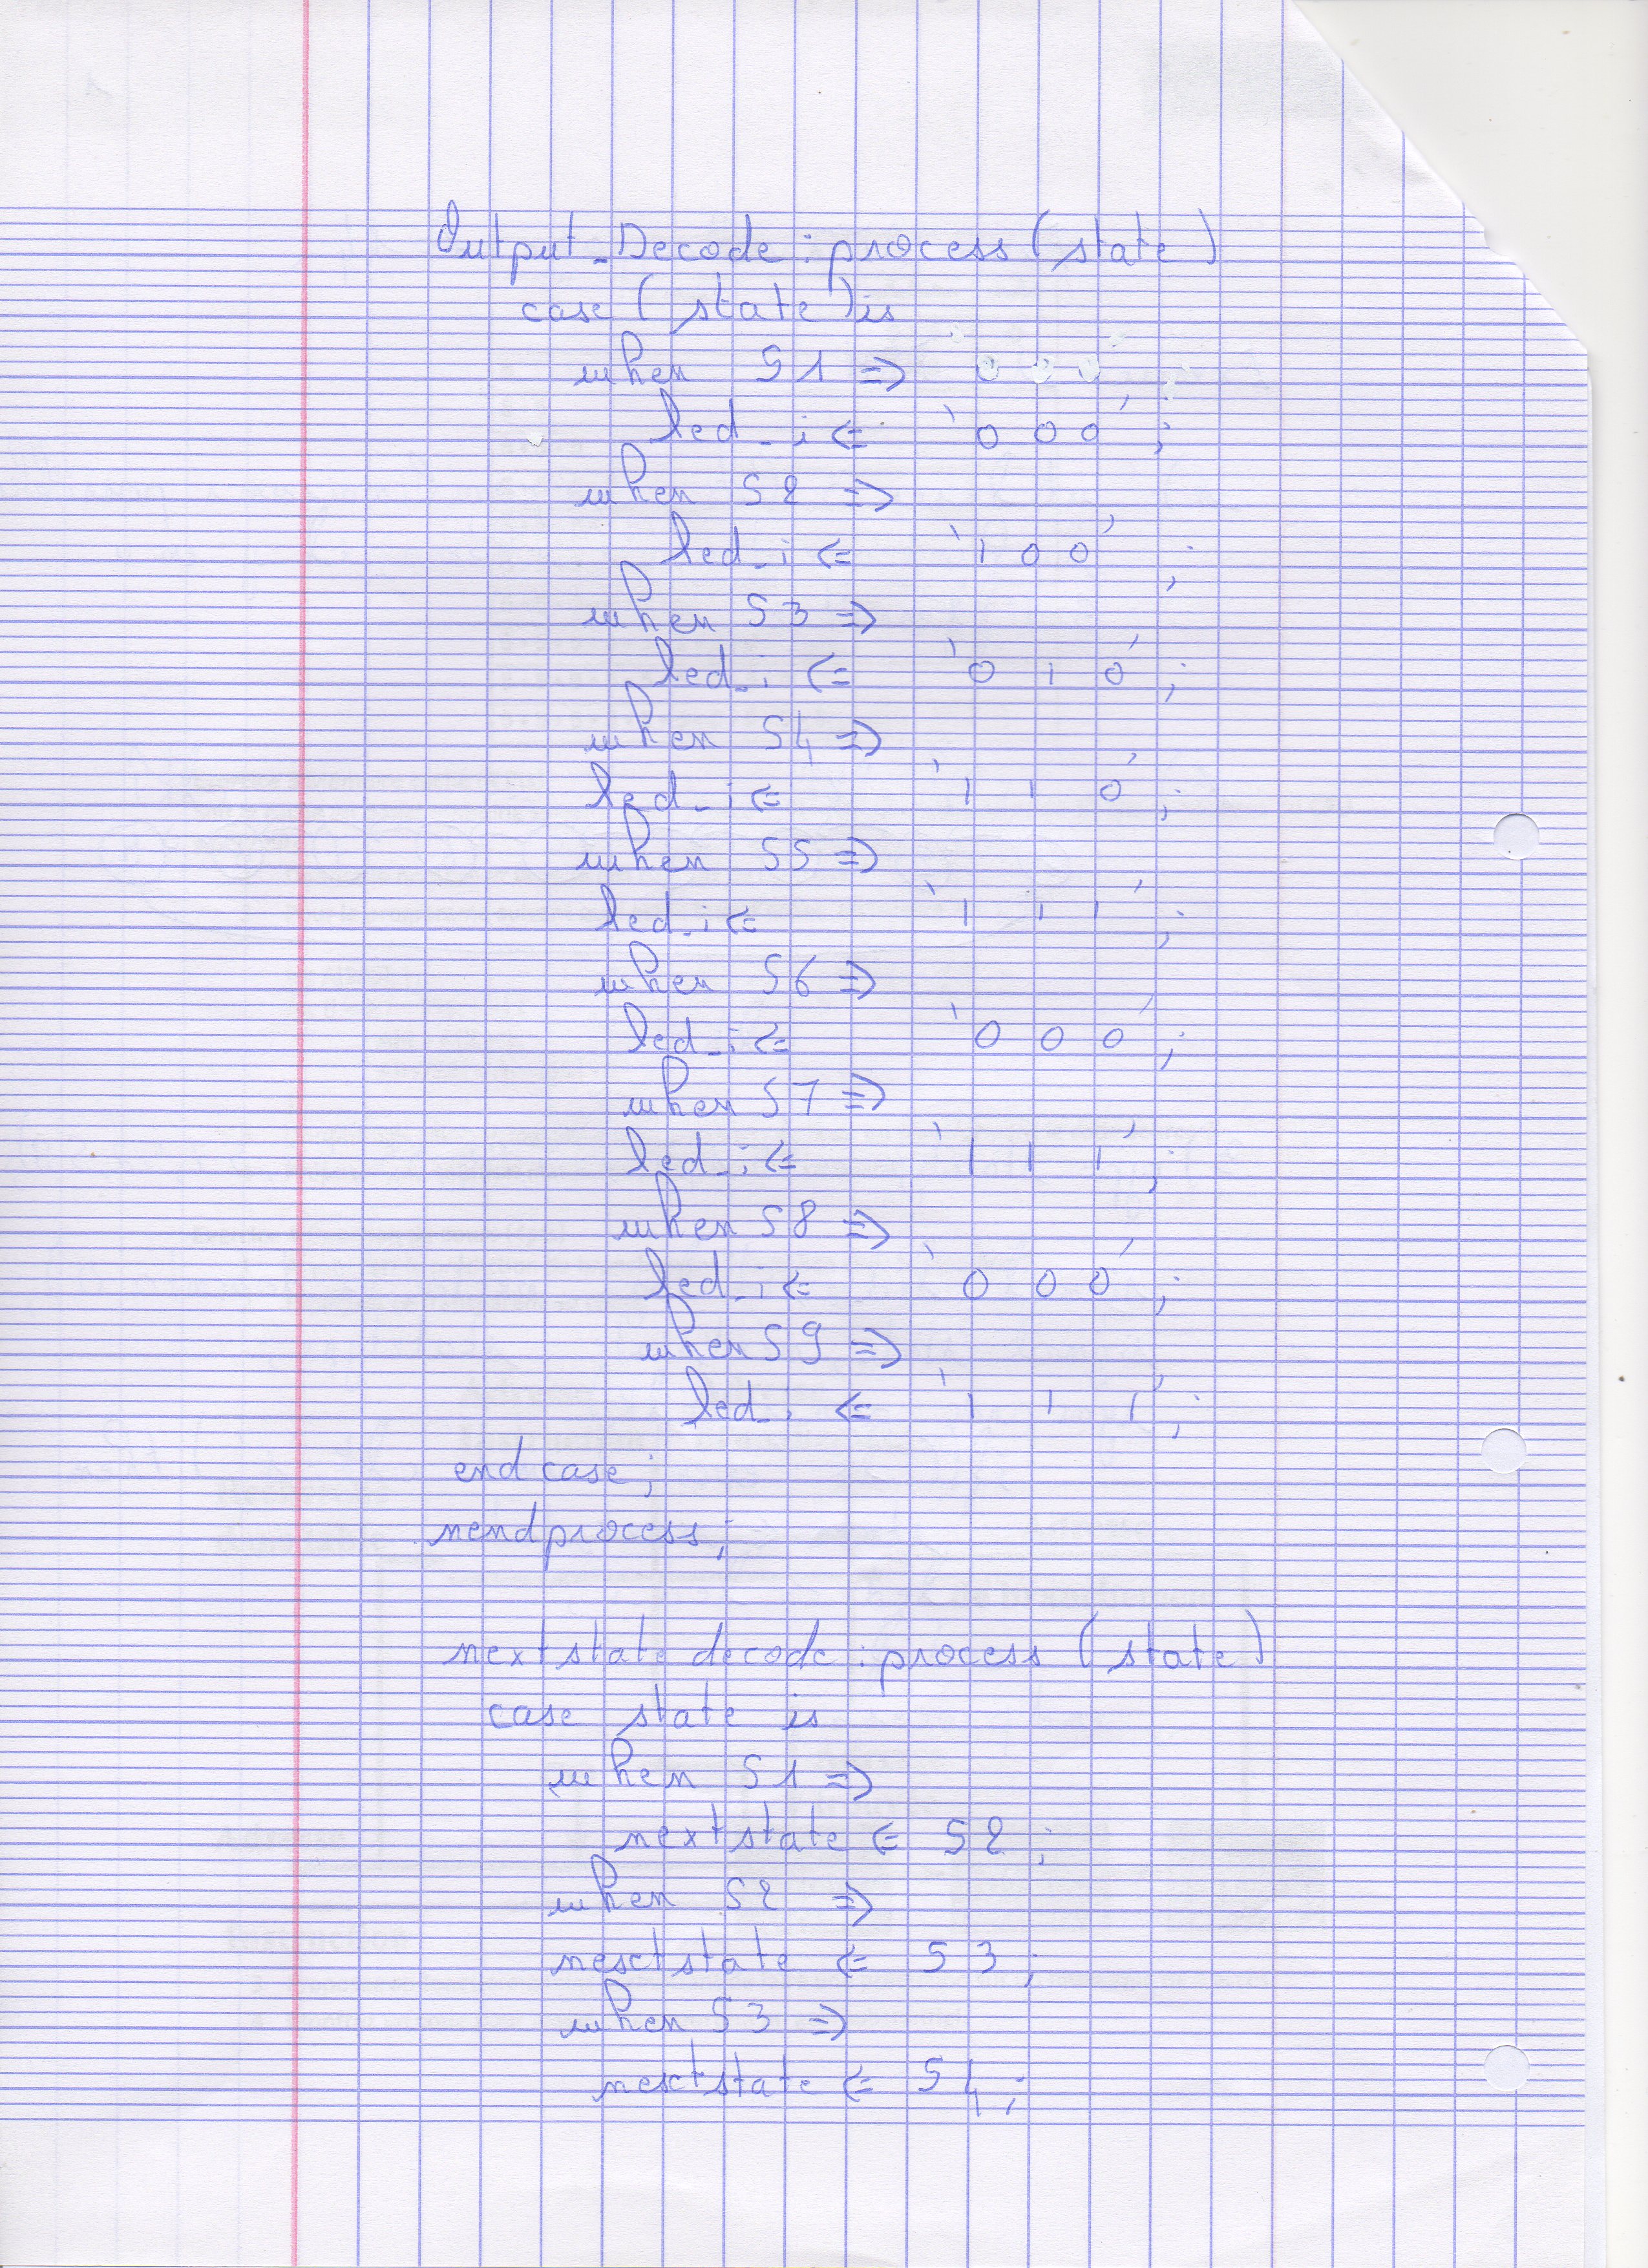 Output_Decode : process (state)
case (state) is
when S1 =>
led_i <= '000';
when S2 =>
led_i <= '100';
when S3 =>
led_i <= '010';
when S4 =>
led_i <= '110';
when S5 =>
led_i <= '111';
when S6 =>
led_i <= '000';
when S7 =>
led_i <= '111';
when S8 =>
led_i <= '000';
when S9 =>
led_i <= '111';
end case;
nendprocess;
nextstate decode : process (state)
case state is
when S1 =>
nextstate <= S2;
when S2 =>
nextstate <= S3;
when S3 =>
nextstate <= S4;